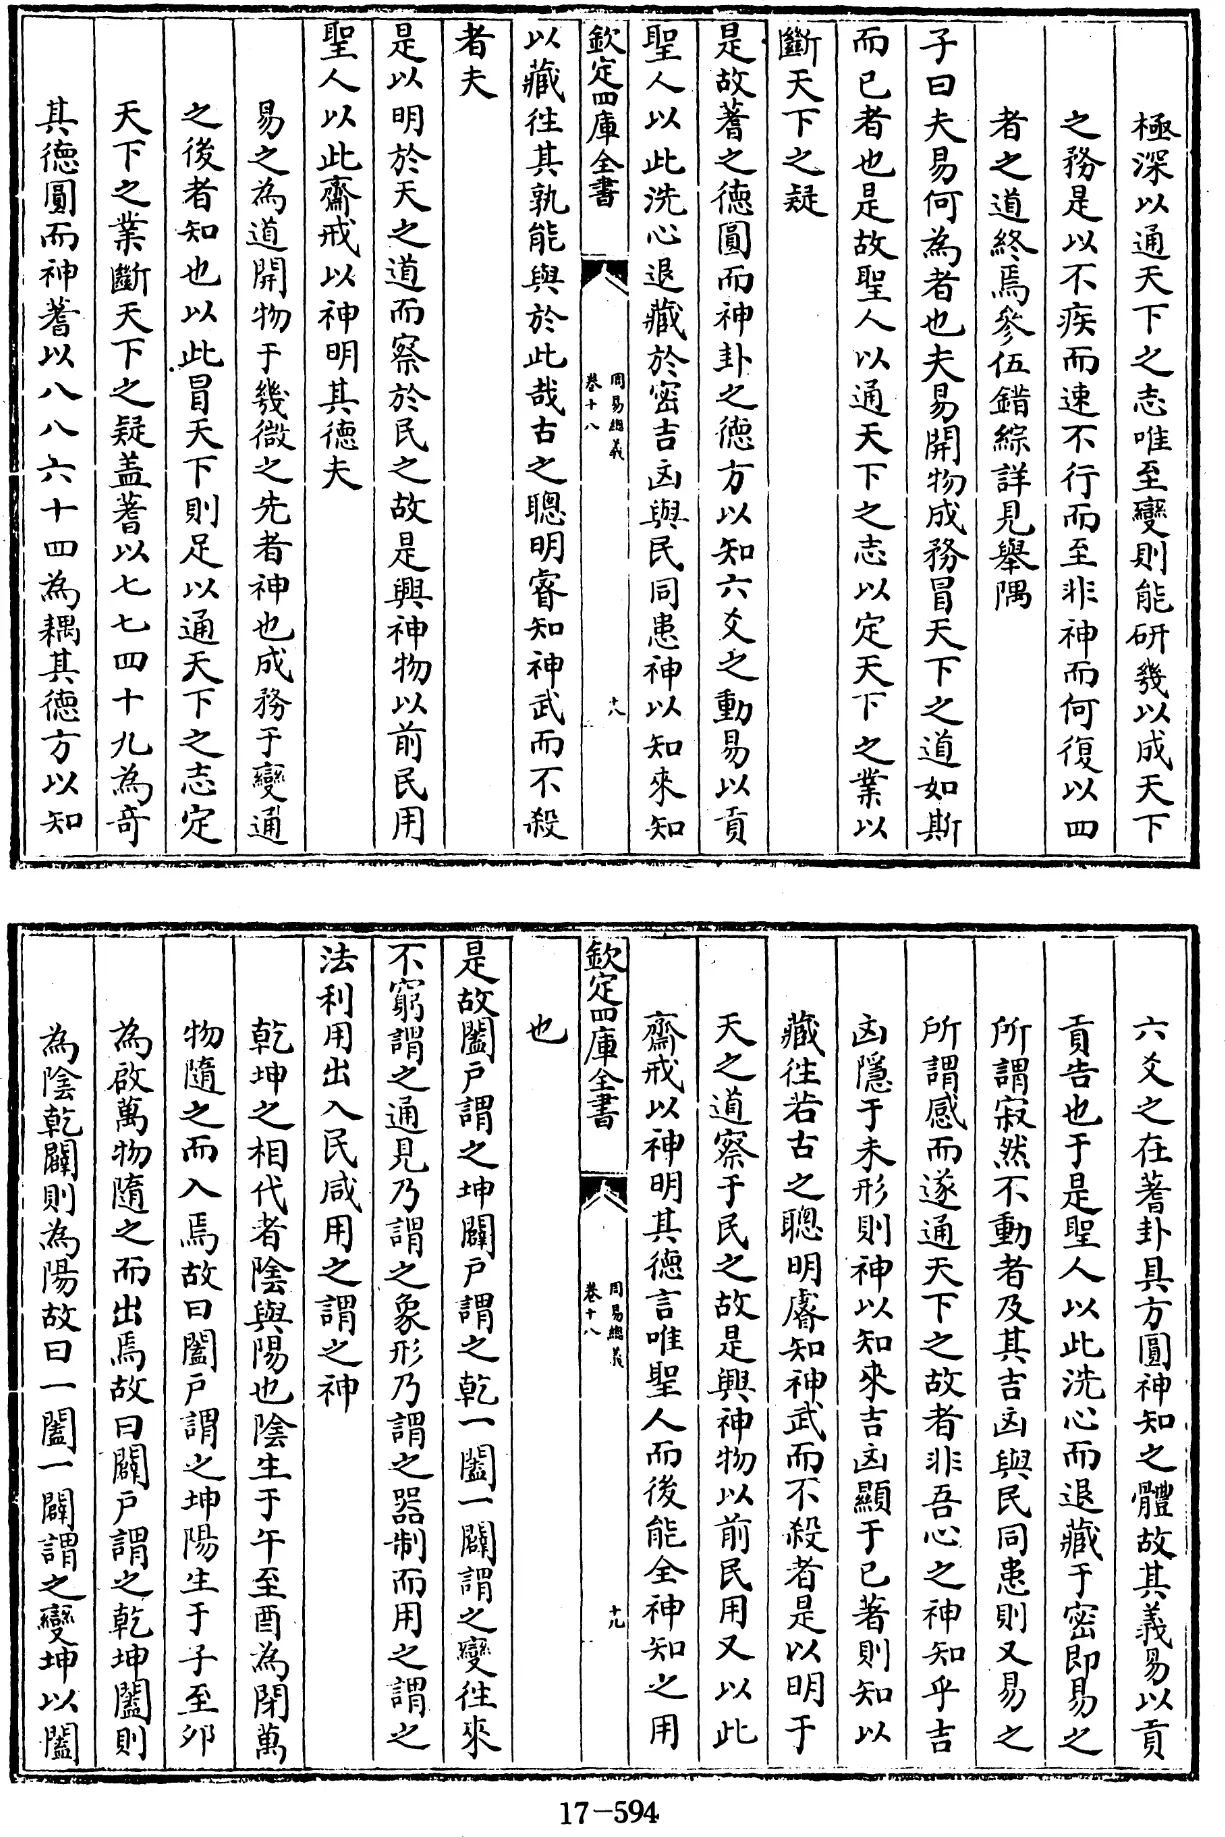 極深以通天下之志唯至變則能研幾以成天下
之務是以不疾而速不行而至非神而何復以四
者之道終焉參伍錯綜詳見舉隅
子曰夫易何為者也夫易開物成務冒天下之道如斯
而已者也是故聖人以通天下之志以定天下之業以
斷天下之疑
是故蓍之德圓而神卦之德方以知六爻之動易以貢
聖人以此洗心退藏於密吉凶與民同患神以知來知
欽定四庫全書
周易總義
卷十八
十八
以藏往其孰能與於此哉古之聰明睿知神武而不殺
者夫
是以明於天之道而察於民之故是興神物以前民用
聖人以此齋戒以神明其德夫
易之為道開物于幾微之先者神也成務于變通
之後者知也以此冒天下則足以通天下之志定
天下之業斷天下之疑蓋蓍以七七四十九為奇
其德圓而神蓍以八八六十四為耦其德方以知
六爻之在蓍卦具方圓神知之體故其義易以貢
貢告也于是聖人以此洗心而退藏于密即易之
所謂寂然不動者及其吉凶與民同患則又易之
所謂感而遂通天下之故者非吾心之神知乎吉
凶隱于未形則神以知來吉凶顯于已著則知以
藏往若古之聰明睿知神武而不殺者是以明于
天之道察于民之故是興神物以前民用又以此
齋戒以神明其德言唯聖人而後能全神知之用
欽定四庫全書
周易總義
卷十八
十九
也
是故闔戶謂之坤闢戶謂之乾一闔一闢謂之變往來
不窮謂之通見乃謂之象形乃謂之器制而用之謂之
法利用出入民咸用之謂之神
乾坤之相代者陰與陽也陰生于午至酉為閉萬
物隨之而入焉故曰闔戶謂之坤陽生于子至夘
為啟萬物隨之而出焉故曰闢戶謂之乾坤闔則
為陰乾闢則為陽故曰一闔一闢謂之變坤以闔
17-594